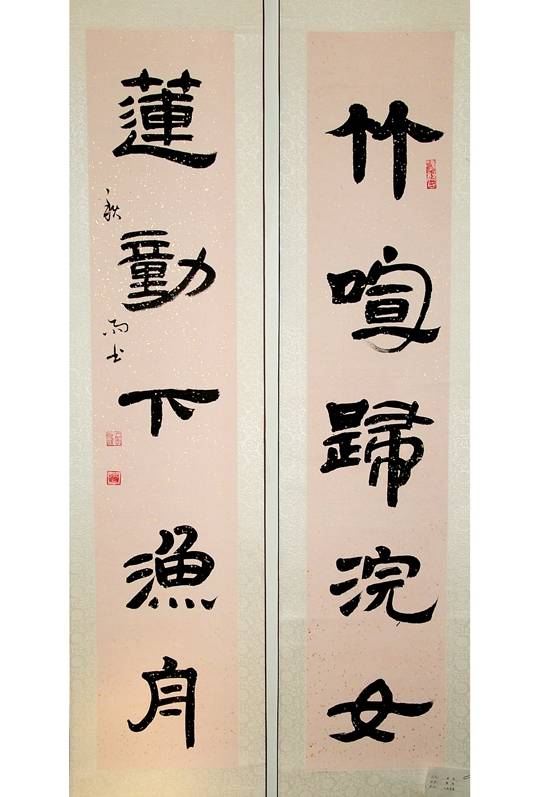 竹喧歸浣女
蓮動下漁舟
秋雨书